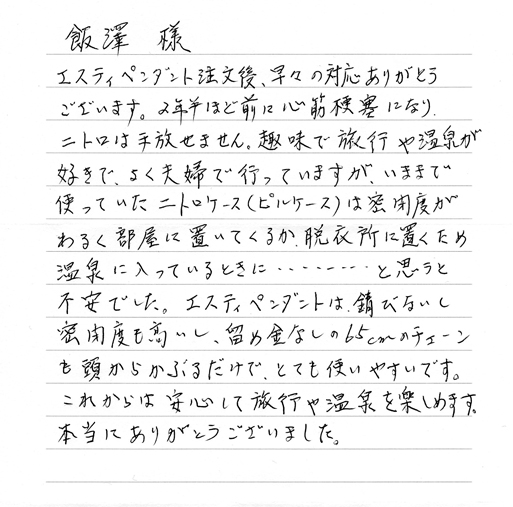 飯澤 様
エスティペンダント注文後、早々の対応ありがとう
ございます。2年半ほど前に心筋梗塞になり、
ニトロは手放せません。趣味で旅行や温泉が
好きで、よく夫婦で行っていますが、いままで
使っていたニトロケース(ピルケース)は密閉度が
わるく部屋に置いてくるか、脱衣所に置くため
温泉に入っているときに・・・・・・・と思うと
不安でした。エスティペンダントは、錆びないし
密閉度も高いし、留め金なしの65cmのチェーン
も頭からかぶるだけで、とても使いやすいです。
これからは安心して旅行や温泉を楽しめます。
本当にありがとうございました。